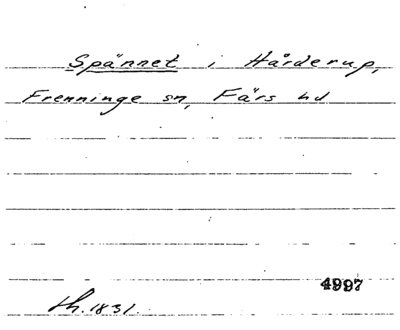 Spännet i Hårderup,
Frenninge sn, Färs hd
4997
th. 1831.